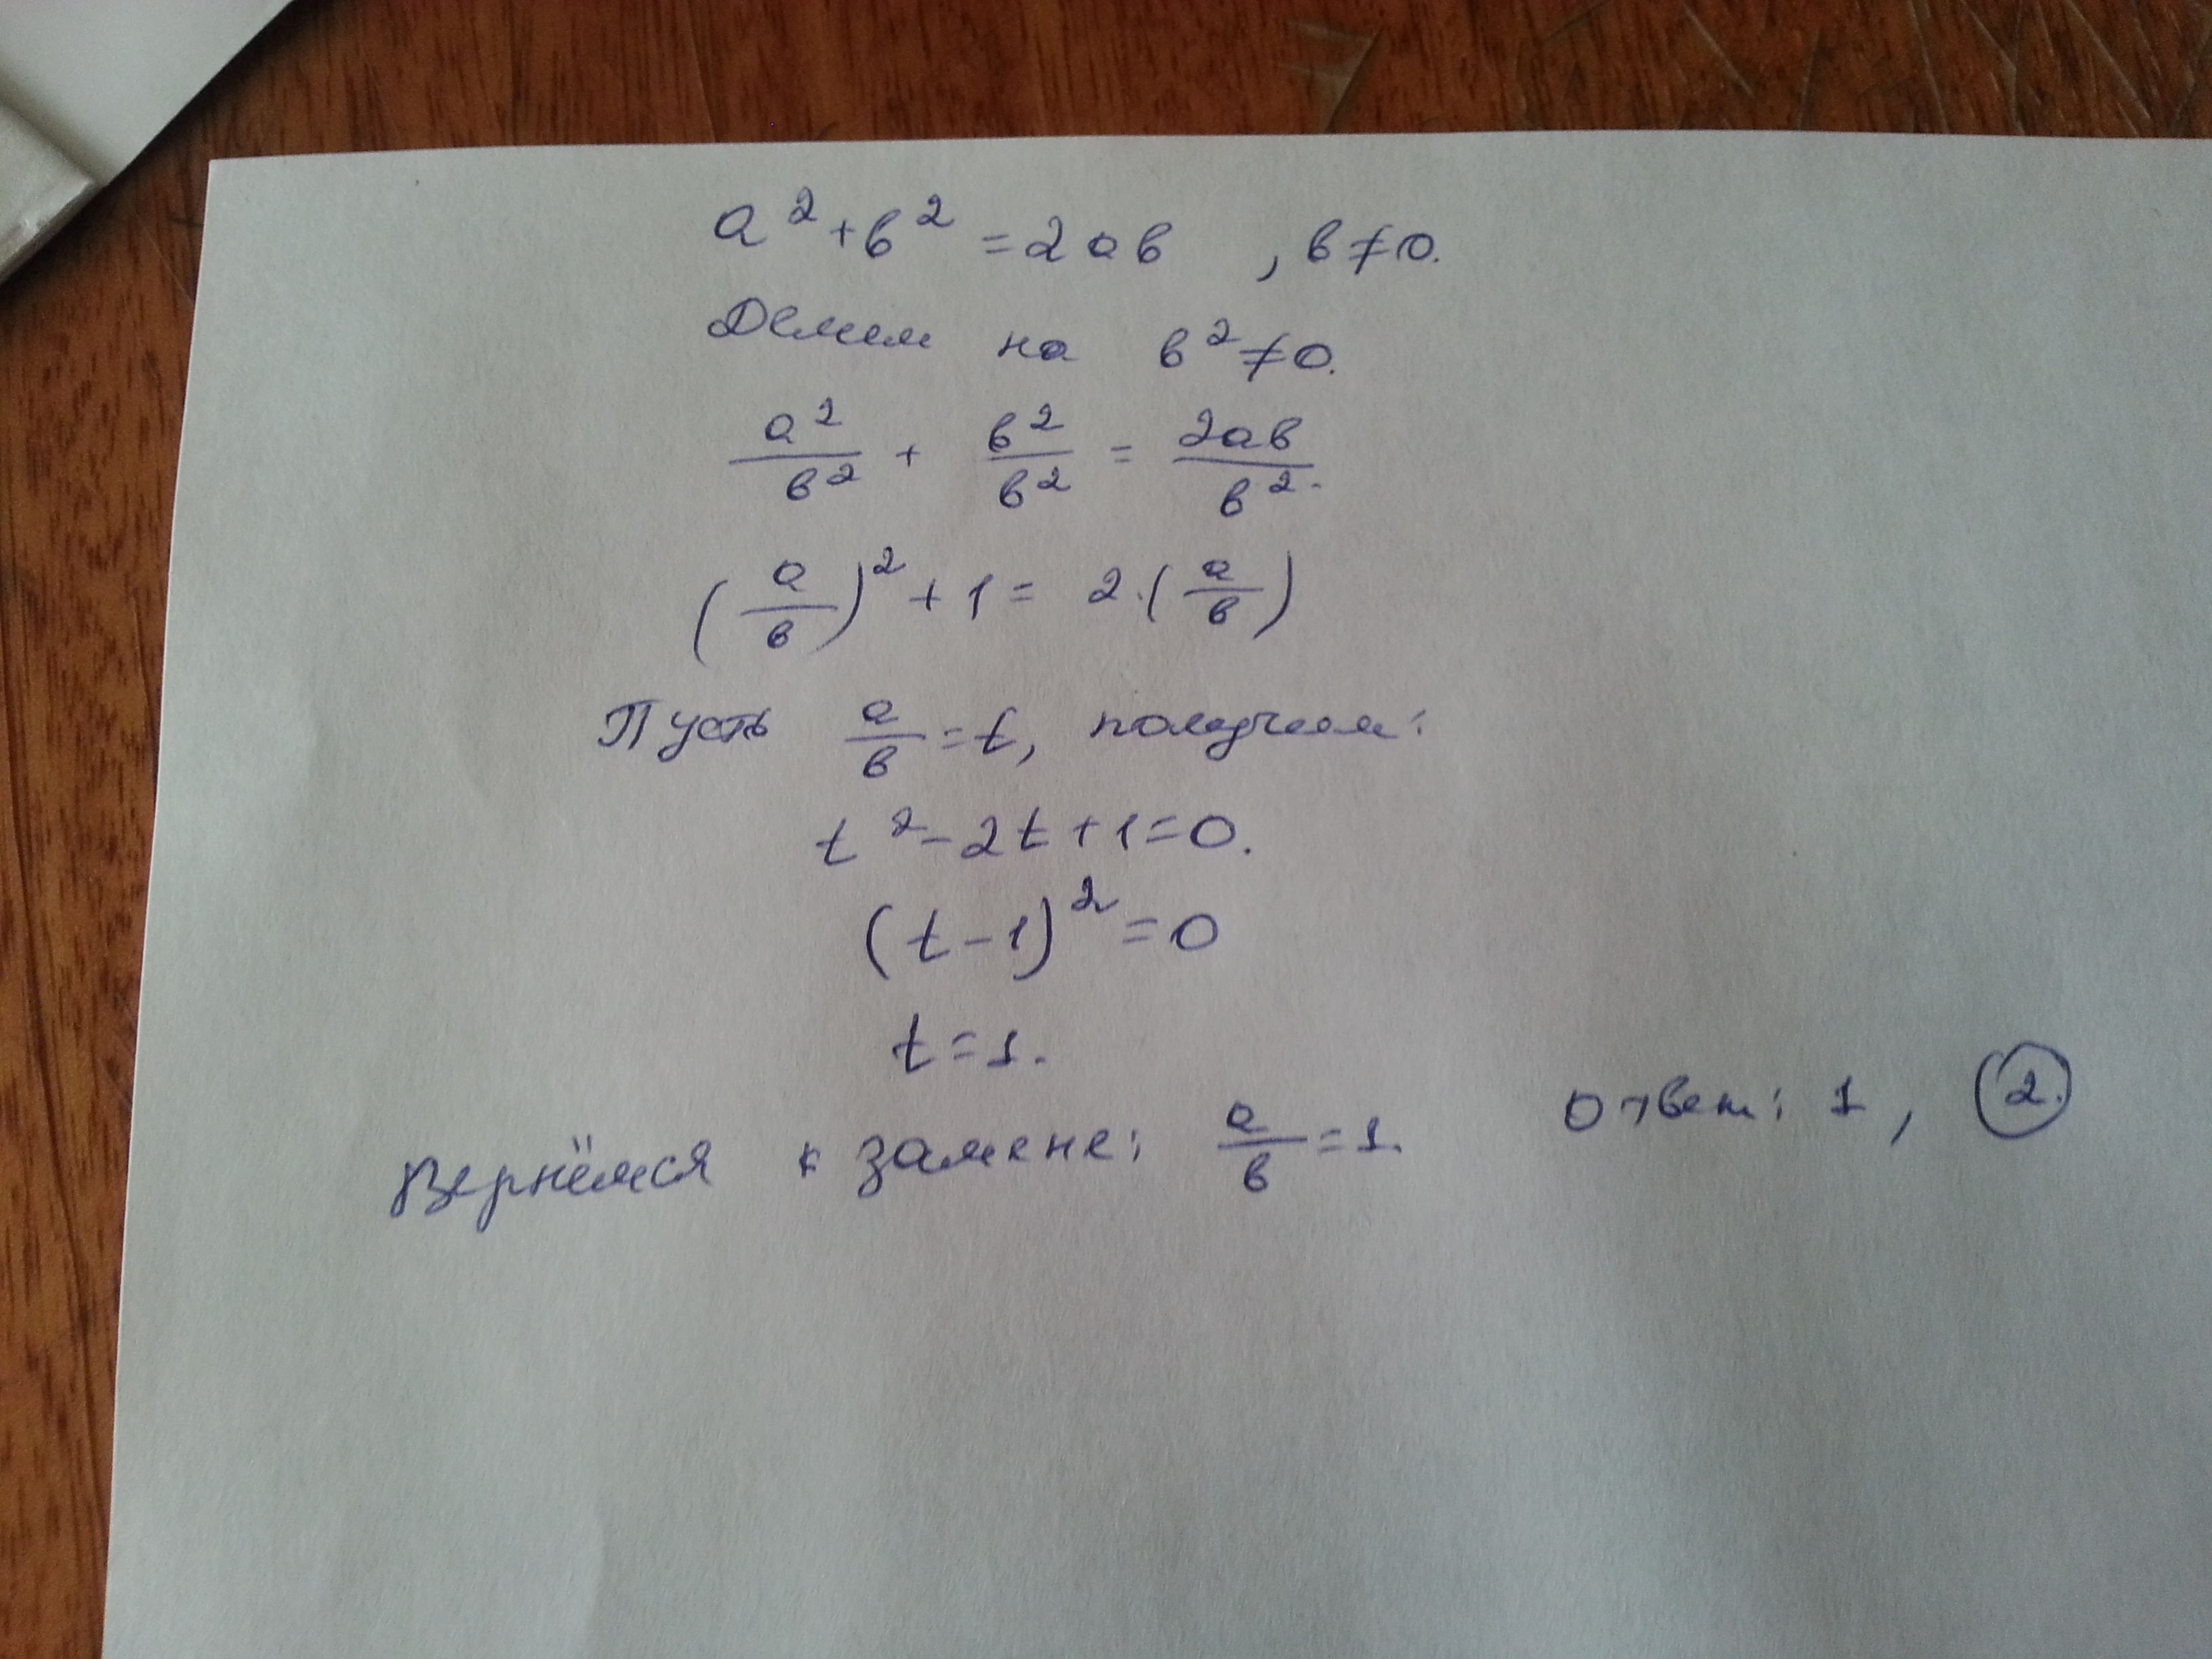 a² + в² = 2ав , в ≠ 0.
Делим на в² ≠ 0.
a²/в² + в²/в² = 2ав/в².
(a/в)² + 1 = 2·(a/в)
Пусть a/в = t, получим:
t² - 2t + 1 = 0.
(t - 1)² = 0
t = 1.
Вернёмся к замене: a/в = 1. Ответ: 1, 2.